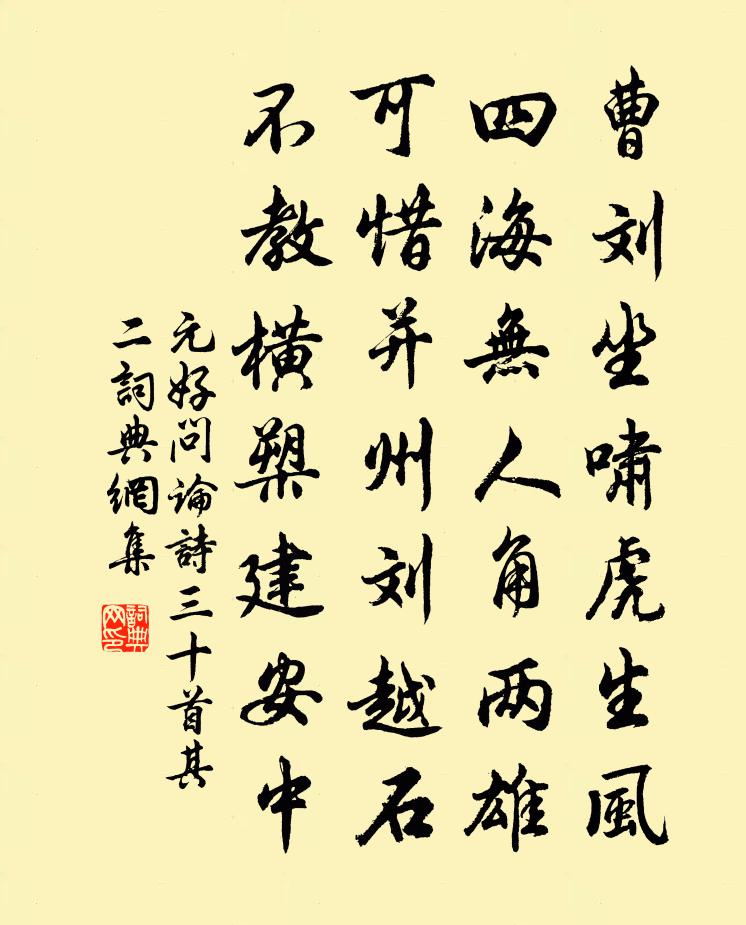 曹刘坐啸虎生風
四海無人角两雄
可惜并州刘越石
不教橫槊建安中
元好问論詩三十首其
二詞典網集
詞典网印